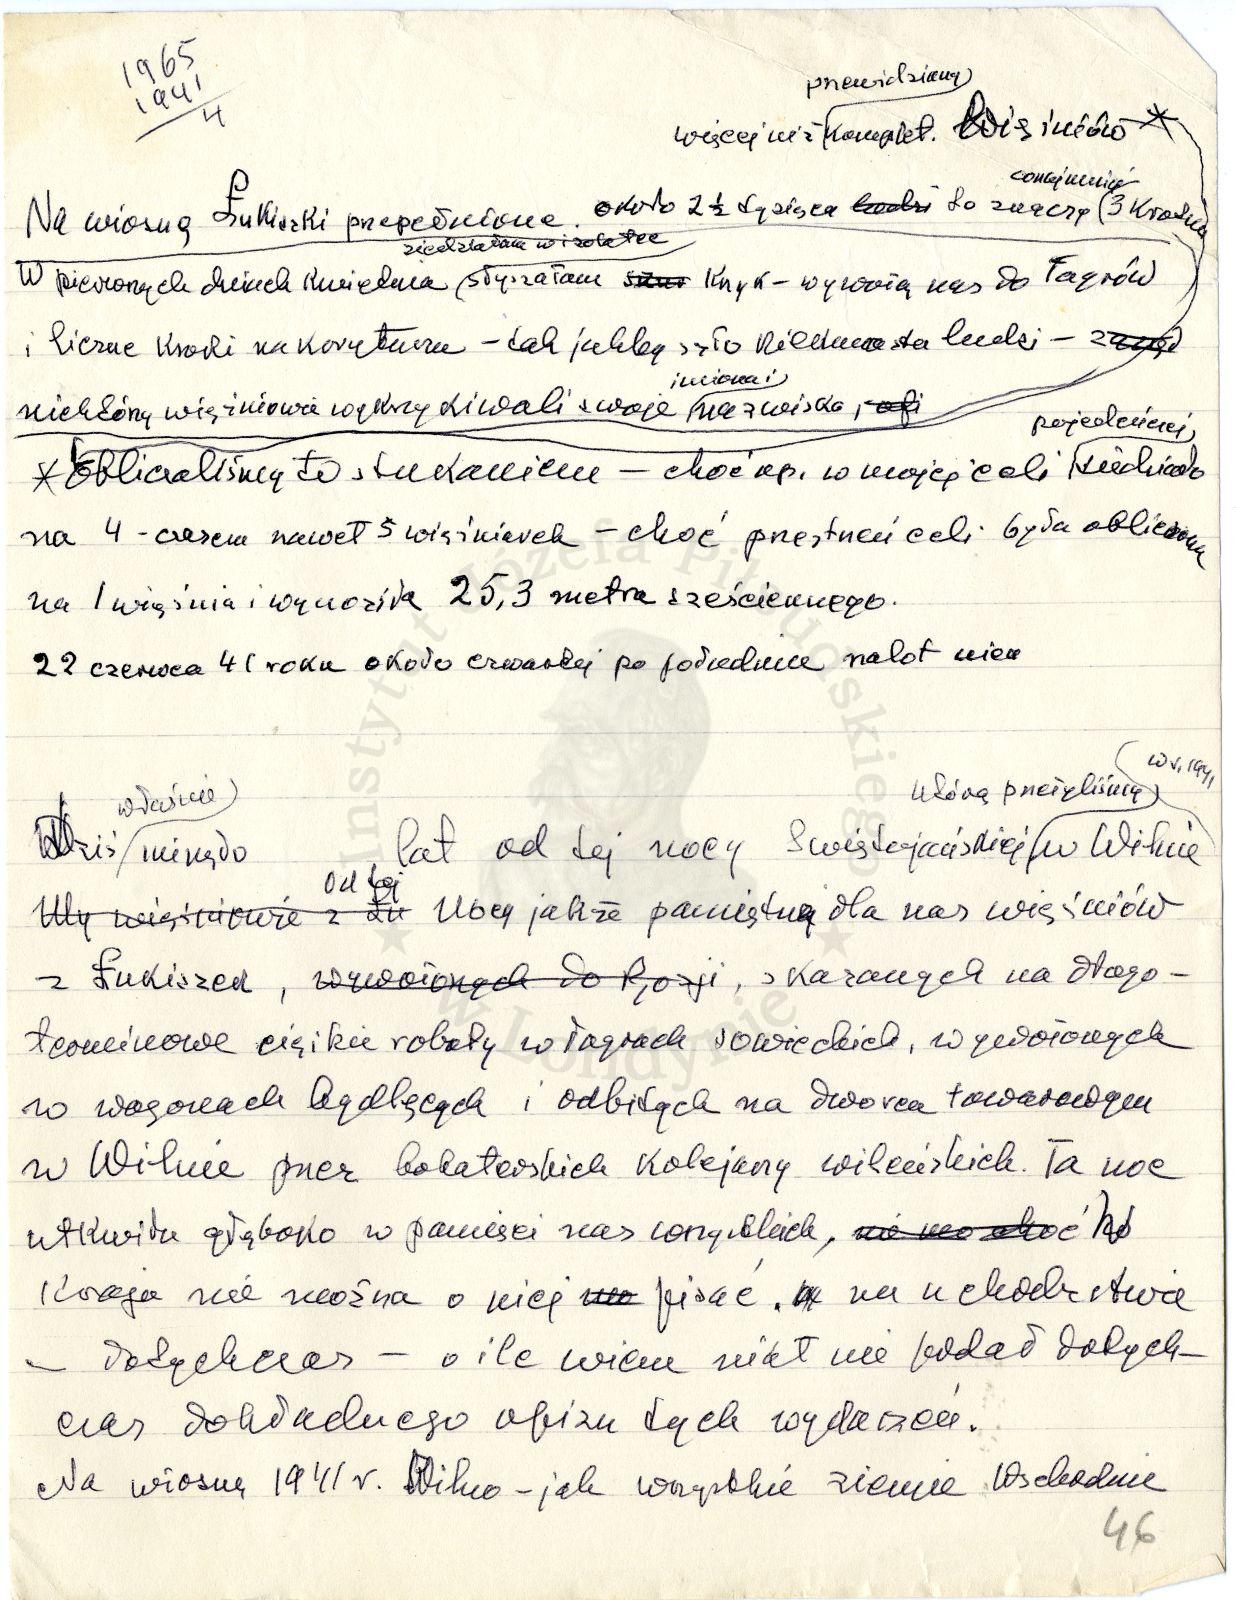 1965
1941
4
przewidziany
więcej niż komplet. Więźniów *
conajmniej
Na wiosnę Łukiszki przepełnione. około 2½ tysiąca ludzi to znaczy (3 krotnie
siedziałam w izolatce
W pierwszych dniach kwietnia słyszałam krzyk – wywożą nas do łagrów
i liczne kroki na korytarzu – tak jakby szło kilkunastu ludzi –
imiona i
niektórzy więźniowie wykrzykiwali swoje nazwiska,
pojedyńczej
* Obliczaliśmy to stukaniem – choć np. w mojej celi siedziało
na 4 - czasem nawet 5 więźniarek – choć przestrzeń celi była obliczona
na 1 więźnia i wynosiła 25,3 metra sześciennego.
22 czerwca 41 roku około czwartej po południu nalot niem
w r. 1941
właśnie którą przeżyliśmy
Dziś minęło lat od tej nocy Świętojańskiej w Wilnie
Od tej
My więźniowie z Nocy jakże pamiętnej dla nas więźniów
z Łukiszek, wywożonych do Rosji, skazanych na długo-
terminowe ciężkie roboty w łagrach sowieckich, wywożonych
w wagonach bydlęcych i odbitych na dworcu towarowym
w Wilnie przez bohaterskich kolejarzy wileńskich. Ta noc
utkwiła głęboko w pamięci nas wszystkich,
Kraju nie można o niej pisać. na uchodźstwie
– dotychczas – o ile wiem nikt nie podał dotych-
czas dokładnego opisu tych wydarzeń.
Na wiosnę 1941 r. Wilno – jak wszystkie ziemie Wschodnie
46
Instytut Józefa Piłsudskiego
w Londynie